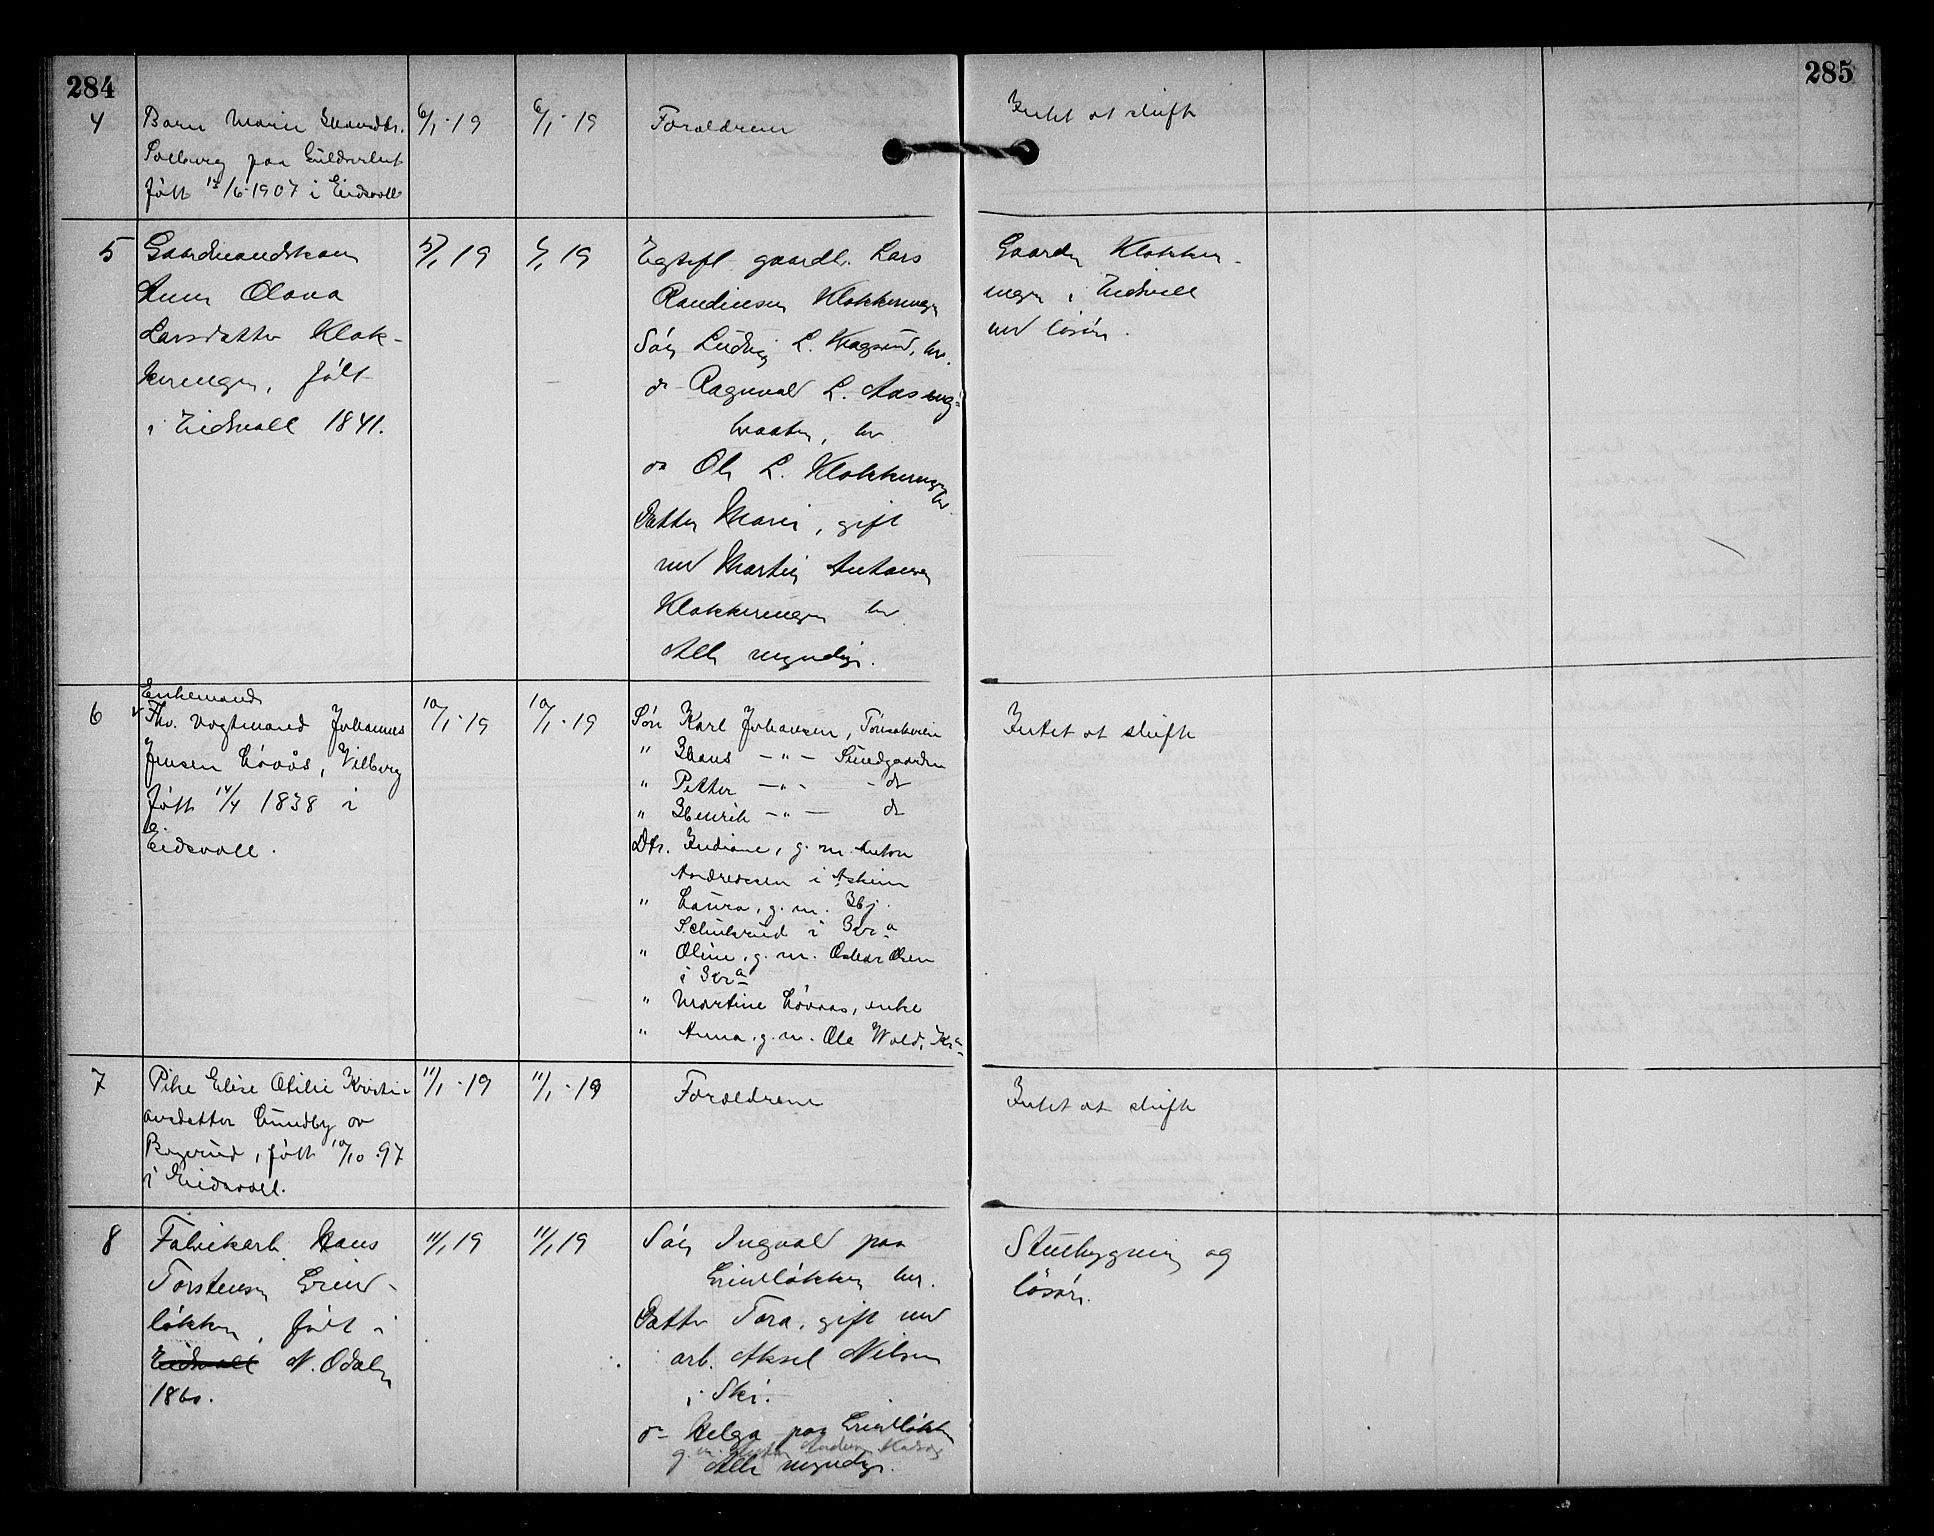 284
285
4
Barn Marie
Solberg paa
født 12/6-1907 i Eidsvoll
6/1-19
6/1-19
Forældrene
Intet at skifte
5
Gaardmandskone
Anne Olava
Larsdatter Klok-
keringen, født
i Eidsvoll 1841.
5/1 19
6/1 19
Egtefl. gaardbr. Lars
Klokkeringen
Søn Ludvig L. her.
do Ragnvald L. Aaseng-
braaten, her
do Ole L. Klokkeringen
her
Datter Marie, gift
med Martin Antonsen
Klokkeringen her
Alle myndige.
Gaarden Klokker-
ingen i Eidsvoll
med løsøre.
6
Enkemand
Fhv. vogtmand Johannes
Jensen Løvås, Vilberg
født 14/4 1838 i
Eidsvoll.
10/1-19
10/1-19
Søn Karl Johansen,
" Hans — " — Sundgaarden
" Petter — " - - do
" Henrik — " — do
Dtr. Indiane, g. m. Anton
Andreassen i Askim
" Laura, g. m. Hj.
i Kr.a
" Oline, g. m. Oskar Olsen
i Kr.a
" Martine Løvaas, enke
" Anna, g. m. Ole Wold, Kr.a
Intet at skifte
7
Pike Elise Otilie Kristi-
ansdatter Lundby av
født 10/10-97
i Eidsvoll.
11/1-19
11/1-19
Forældrene
Intet at skifte
8
Fabrikarb. Hans
Torstensen Grind-
løkken, født i
Eidsvoll N. Odalen
1860.
11/1 19
11/1 19
Søn Ingvald paa
Grindløkken her.
Datter Tora, gift med
arb. Aksel Nilsen
i Ski.
do Helga paa Grindløkken
g. m.
Alle myndige.
Stuebygning og
løsøre.